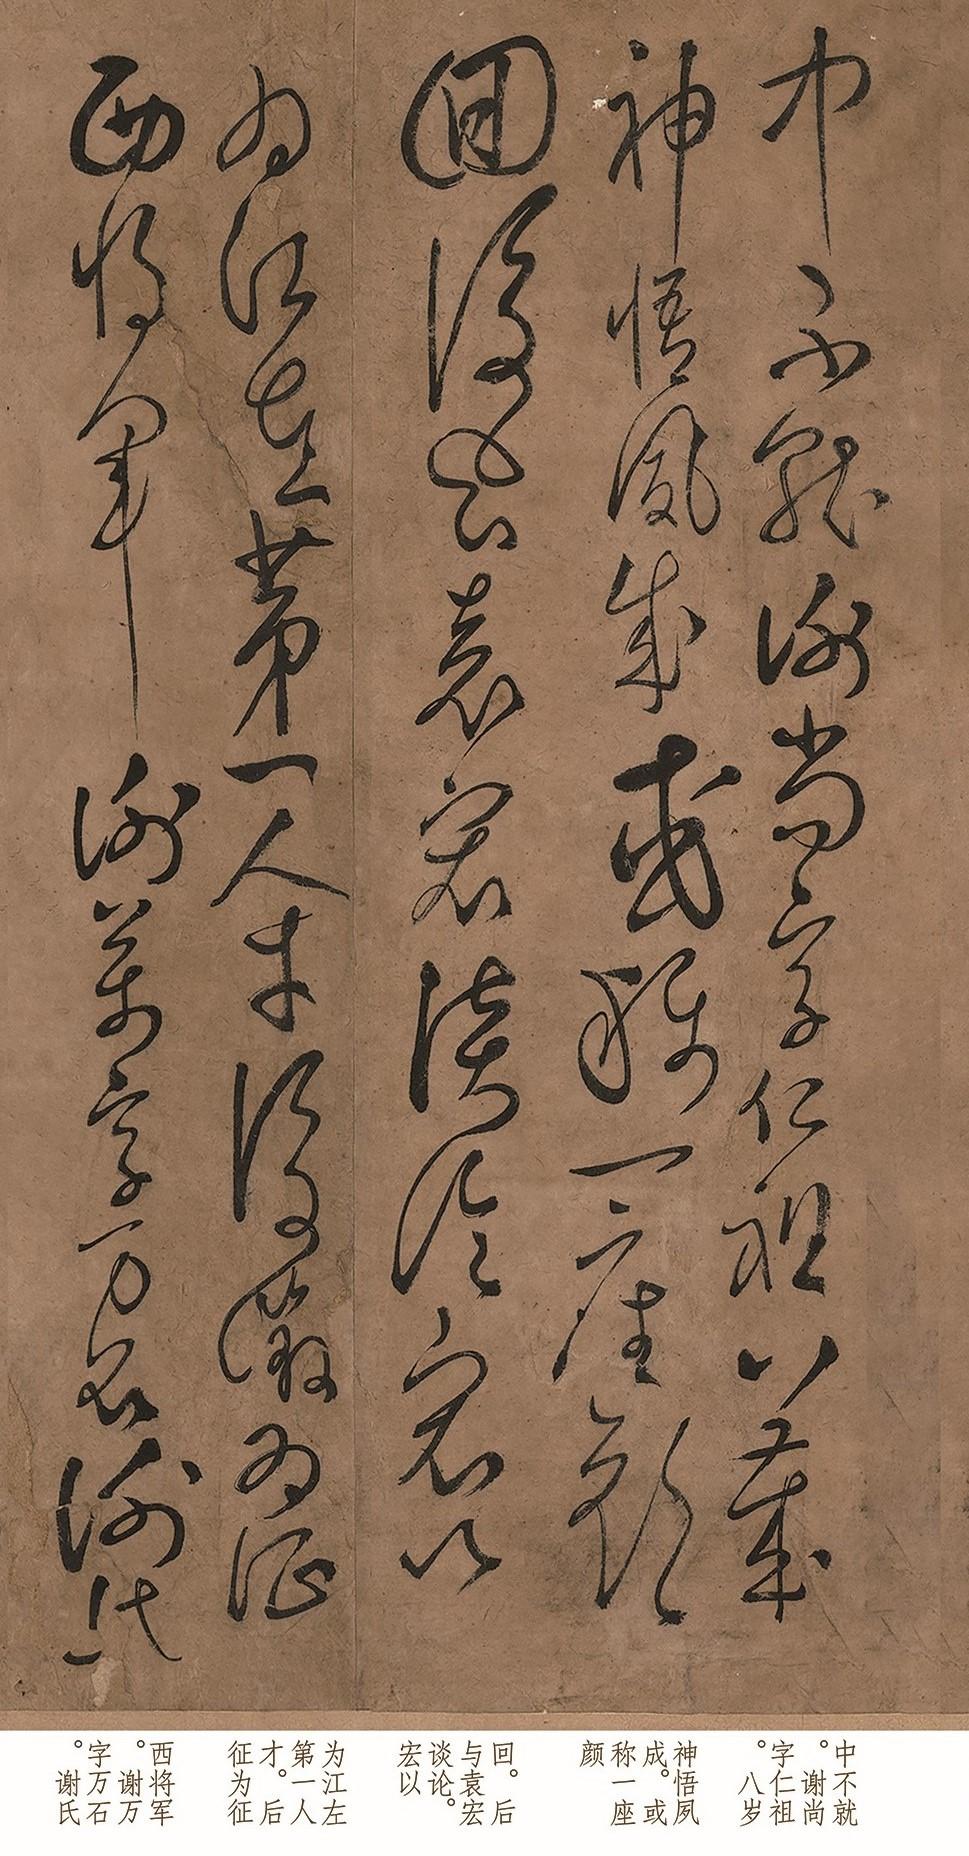 中不就謝尚字仁祖八歲
神悟夙成或稱一座顏
回後与袁宏談論宏以
為江左第一人才後徵為征
西將軍謝萬字万石謝氏
中不就
。谢尚
字仁祖
。八岁
神悟夙
成。或
称一座
颜
回。后
与袁宏
谈论。
宏以
为江左
第一人
才。后
征为征
西将军
。谢万
字万石
。谢氏